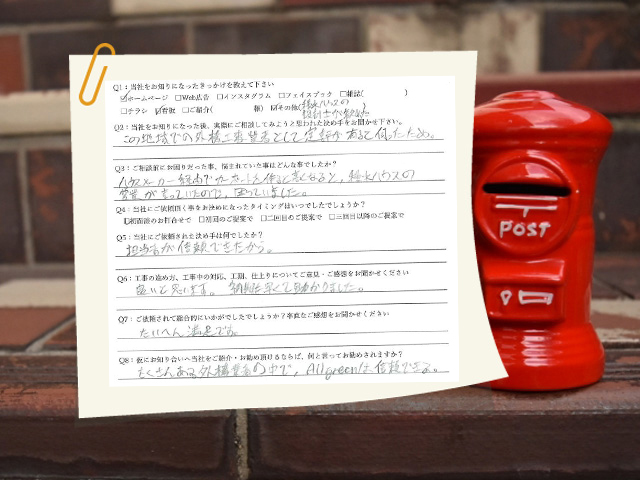 Q1：当社をお知りになったきっかけを教えて下さい
☑ホームページ □Web広告 □インスタグラム □フェイスブック □雑誌( )
□チラシ ☑看板 □ご紹介( 様) ☑その他(積水ハウスの
Q2：当社をお知りになった後、実際にご相談してみようと思われた決め手をお聞かせ下さい。
この地域での外構工事業者として定評があると伺ったため。
Q3：ご相談前にお困りだった事、悩まれていた事はどんな事でしたか？
ハウスメーカー経由で
営業が言っていたので、困っていました。
Q4：当社にご依頼頂く事をお決めになったタイミングはいつでしたでしょうか？
初回面談のお打合せで □初回のご提案で □二回目のご提案で □三回目以降のご提案で
Q5：当社にご依頼された決め手は何でしたか？
担当者が信頼できたから。
Q6：工事の進め方、工事中の対応、工期、仕上りについてご意見・ご感想をお聞かせください
良いと思います。納期も早くて助かりました。
Q7：ご依頼されて総合的にいかがでしたでしょうか？率直なご感想をお聞かせください
たいへん満足です。
Q8：仮にお知り合いへ当社をご紹介・お勧め頂けるならば、何と言ってお勧めされますか？
たくさんある外構業者の中で、Allgreenは信頼できる。
POST